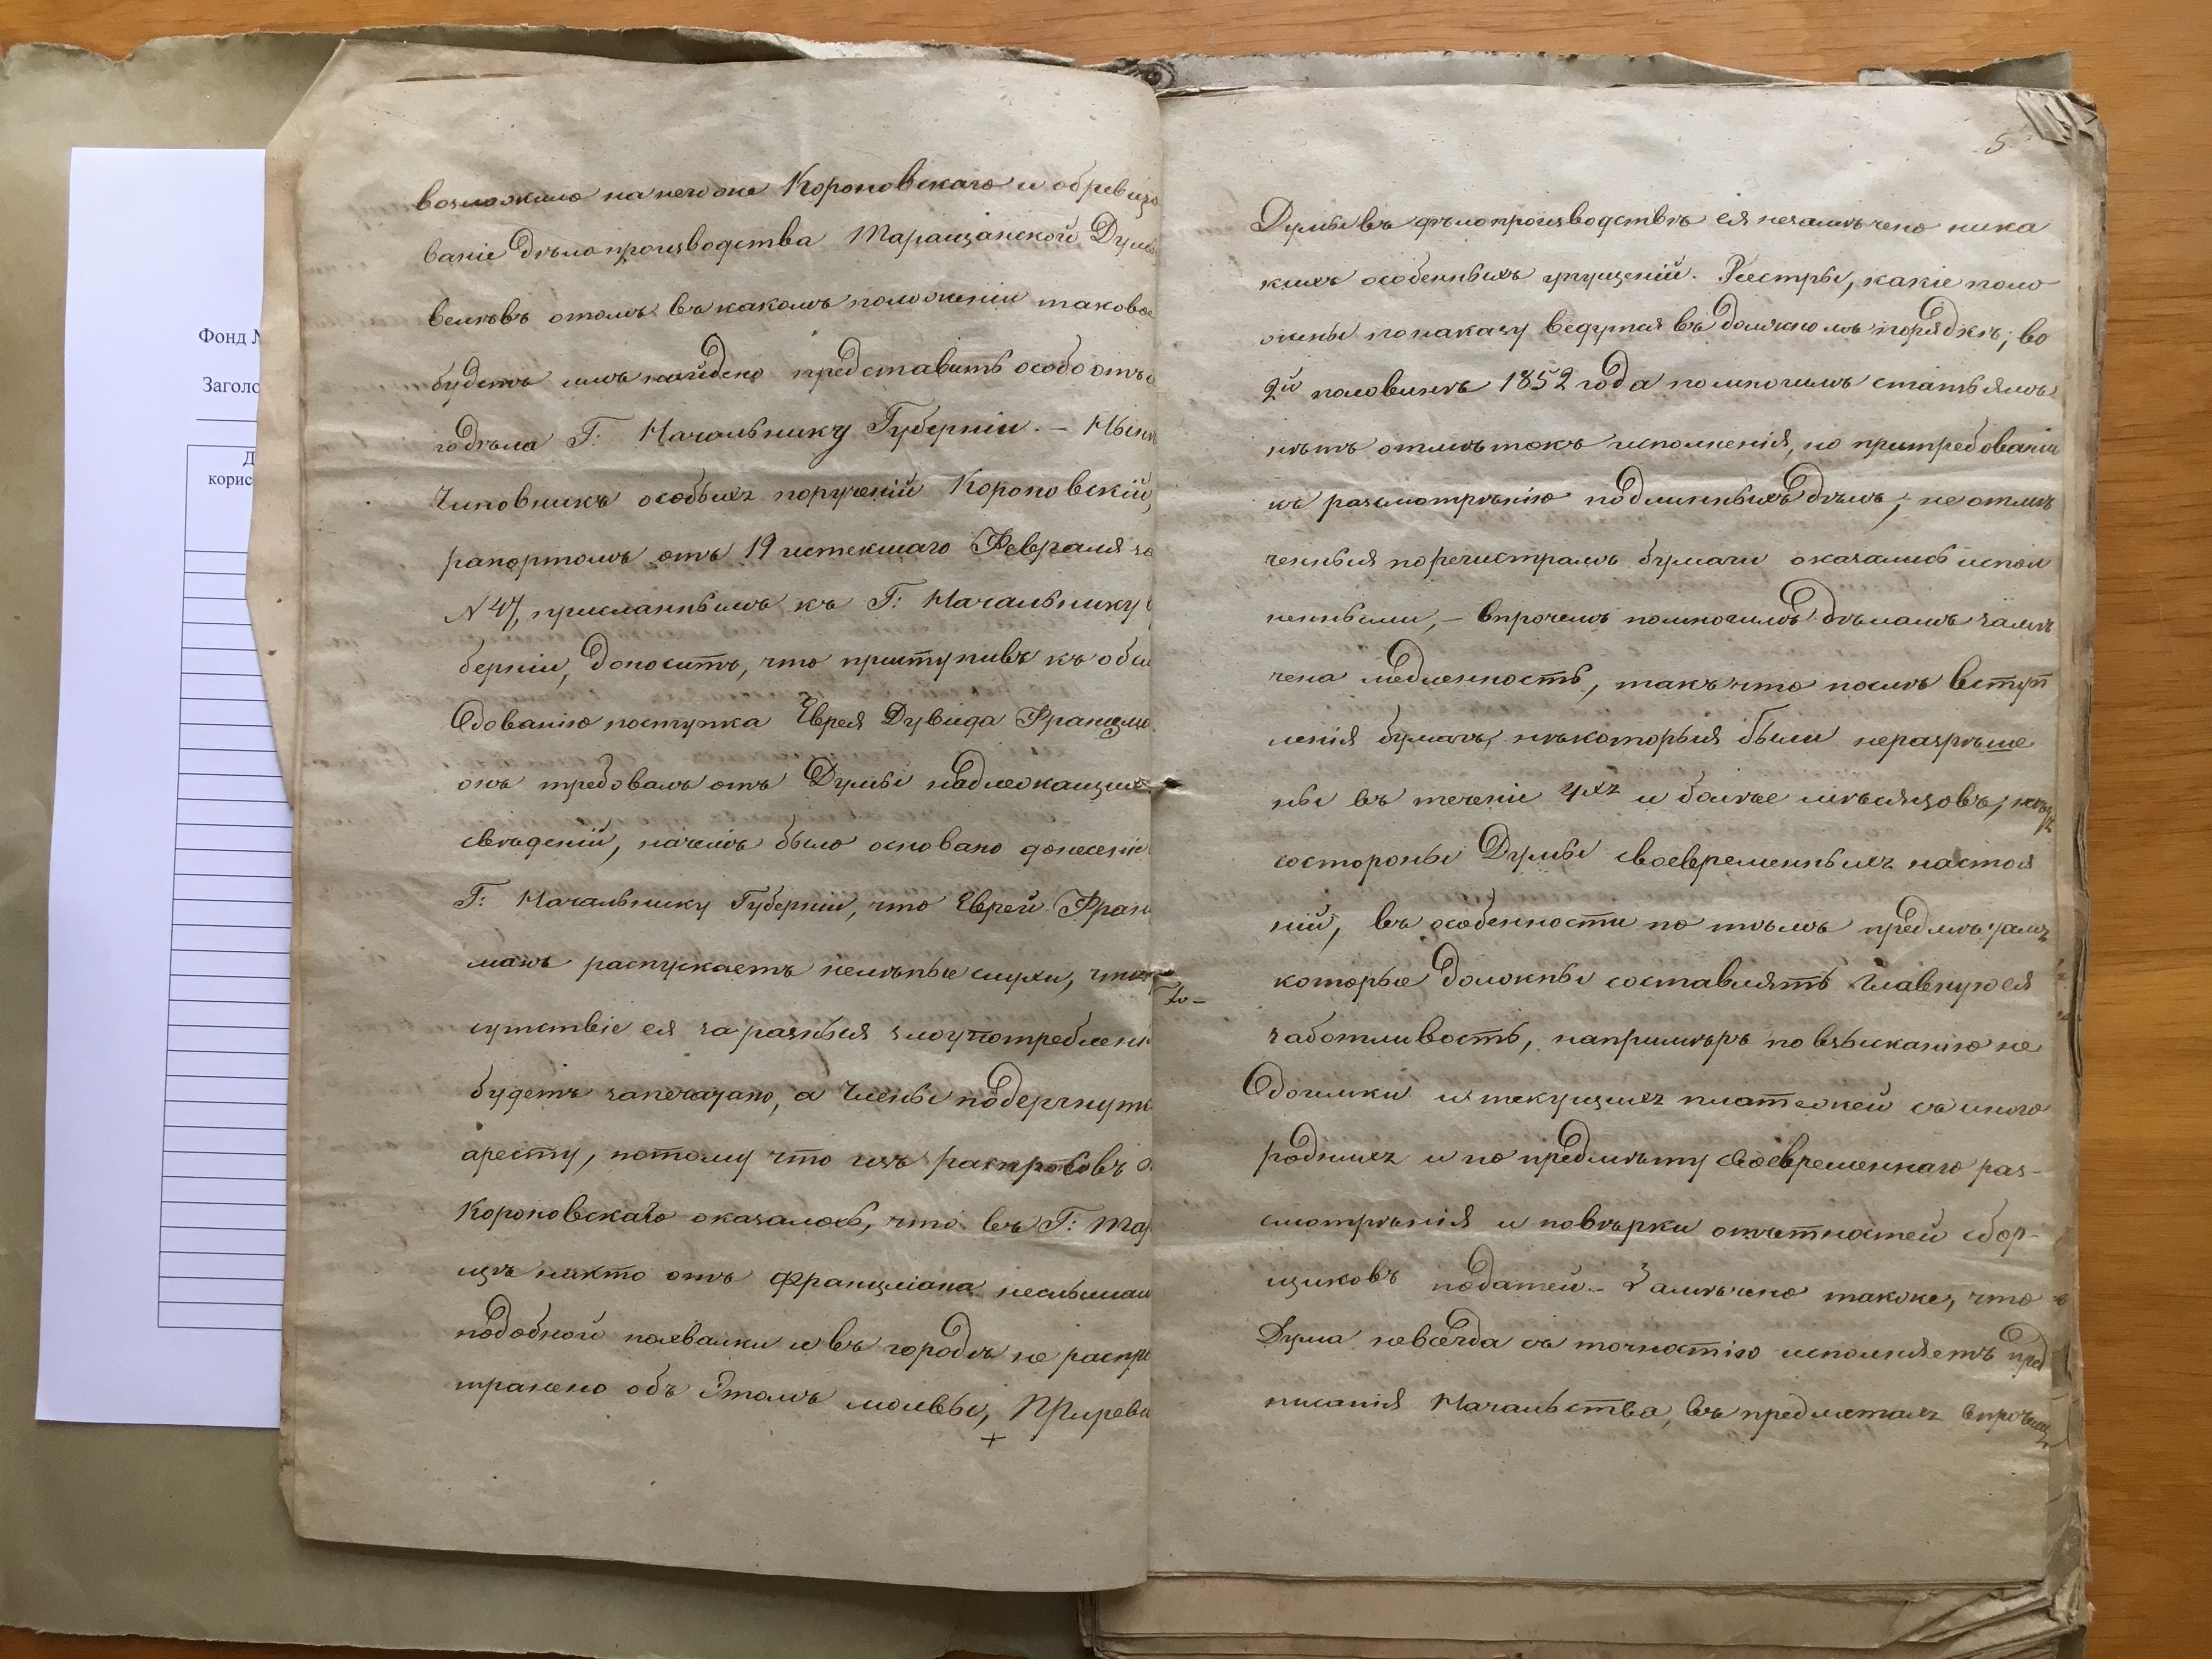 Фонд №
Заголо
Д
корис
возложило на него же Короновскаго и обревизо
ваніе дѣлопроизводства Таращанской Думы
велѣвъ о томъ въ какомъ положеніи таковое
будетъ имъ найдено представить особо отъ
го дѣла Г: Начальнику Губерніи. – Нынѣ
Чиновникъ особыхъ порученій Короновскій,
рапортомъ отъ 19 истекшаго Февраля за
N 47, присланнымъ къ Г: Начальнику
берніи, доноситъ, что приступивъ къ обслѣ
дованію поступка Еврея Дувида Франсма
онъ требовалъ отъ Думы надлежащихъ
свѣденій, на чемъ было основано донесеніе
Г: Начальнику Губерніи, что Еврей Фран
манъ распускаетъ нелѣпые слухи, что
сутствіе ея за разныя злоупотребленія
будетъ запечатано, а Члены подвергнуты
аресту, потому что изъ распросовъ
Короновскаго оказалось, что въ Г: Тара
щѣ никто отъ Францмана не слышалъ
подобной похвалки и въ городѣ не распро
транено объ этомъ молвы, При реви
+
то –
5
Думы въ дѣлопроизводствѣ ея незамѣчено ника
кихъ особенныхъ упущеній. Реестры, какіе поло
жены по наказу ведутся въ должномъ порядкѣ; во
2й половинѣ 1852 года по многимъ статьямъ
нѣтъ отмѣтокъ исполненія, но при требованіи
къ разсмотрѣнію подлинныхъ дѣлъ, не отмѣ
ченныя по регистрамъ бумаги оказались испол
ненными, – впрочемъ по многимъ дѣламъ замѣ
чена медленность, такъ что послѣ вступ
ленія бумагъ, нѣкоторыя были неразрѣше
ны въ теченіи 4хъ и болѣе мѣсяцовъ, нѣтъ
со стороны Думы своевременныхъ настоя
ній, въ особенности по тѣмъ предмѣтамъ
которые должны составлять главную ея
заботливость, напримѣръ по взысканію не
доимки и текущихъ платежей съ иного
родныхъ и по предмѣту своевременнаго раз-
смотрѣнія и повѣрки отчетностей сбор-
щиковъ податей. – Замѣчено также, что
Дума невсегда съ точностію исполняетъ пред
писанія Начальства, въ предметахъ впрочемъ